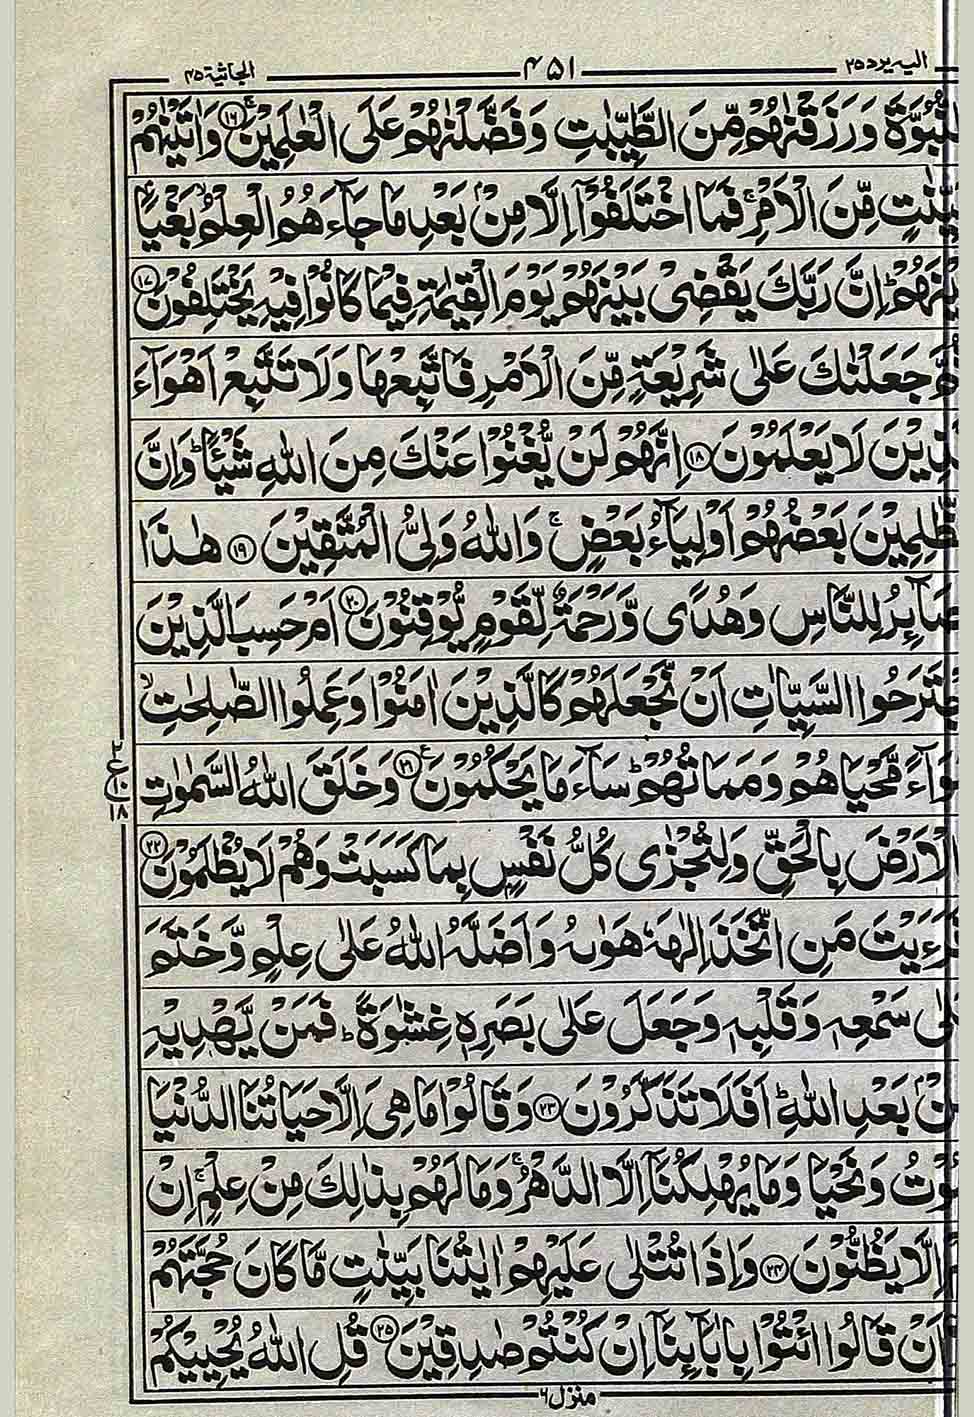 الیہ یرد ۲۵ ۴۵۱ الجاثیة ۴۵
النُّبُوَّةَ وَرَزَقْنٰهُمْ مِّنَ الطَّيِّبٰتِ وَفَضَّلْنٰهُمْ عَلَى الْعٰلَمِيْنَ ۚ ⑯ وَاٰتَيْنٰهُمْ
بَيِّنٰتٍ مِّنَ الْاَمْرِ ۚ فَمَا اخْتَلَفُوْٓا اِلَّا مِنْۢ بَعْدِ مَا جَآءَهُمُ الْعِلْمُ ۙ بَغْيًۢا
بَيْنَهُمْ ؕ اِنَّ رَبَّكَ يَقْضِىْ بَيْنَهُمْ يَوْمَ الْقِيٰمَةِ فِيْمَا كَانُوْا فِيْهِ يَخْتَلِفُوْنَ ⑰
ثُمَّ جَعَلْنٰكَ عَلٰى شَرِيْعَةٍ مِّنَ الْاَمْرِ فَاتَّبِعْهَا وَلَا تَتَّبِعْ اَهْوَآءَ
الَّذِيْنَ لَا يَعْلَمُوْنَ ⑱ اِنَّهُمْ لَنْ يُّغْنُوْا عَنْكَ مِنَ اللّٰهِ شَيْـًٔا ؕ وَاِنَّ
الظّٰلِمِيْنَ بَعْضُهُمْ اَوْلِيَآءُ بَعْضٍ ۚ وَاللّٰهُ وَلِىُّ الْمُتَّقِيْنَ ⑲ هٰذَا
بَصَآئِرُ لِلنَّاسِ وَهُدًى وَّرَحْمَةٌ لِّقَوْمٍ يُّوْقِنُوْنَ ⑳ اَمْ حَسِبَ الَّذِيْنَ
اجْتَرَحُوا السَّيِّاٰتِ اَنْ نَّجْعَلَهُمْ كَالَّذِيْنَ اٰمَنُوْا وَعَمِلُوا الصّٰلِحٰتِ ۙ
سَوَآءً مَّحْيَاهُمْ وَمَمَاتُهُمْ ؕ سَآءَ مَا يَحْكُمُوْنَ ࣖ ㉑ وَخَلَقَ اللّٰهُ السَّمٰوٰتِ
۲ ع ۱۰ ۱۸
وَالْاَرْضَ بِالْحَقِّ وَلِتُجْزٰى كُلُّ نَفْسٍۢ بِمَا كَسَبَتْ وَهُمْ لَا يُظْلَمُوْنَ ㉒
اَفَرَءَيْتَ مَنِ اتَّخَذَ اِلٰهَهٗ هَوٰىهُ وَاَضَلَّهُ اللّٰهُ عَلٰى عِلْمٍ وَّخَتَمَ
عَلٰى سَمْعِهٖ وَقَلْبِهٖ وَجَعَلَ عَلٰى بَصَرِهٖ غِشٰوَةً ؕ فَمَنْ يَّهْدِيْهِ
مِنْۢ بَعْدِ اللّٰهِ ؕ اَفَلَا تَذَكَّرُوْنَ ㉓ وَقَالُوْا مَا هِىَ اِلَّا حَيَاتُنَا الدُّنْيَا
نَمُوْتُ وَنَحْيَا وَمَا يُهْلِكُنَآ اِلَّا الدَّهْرُ ۚ وَمَا لَهُمْ بِذٰلِكَ مِنْ عِلْمٍ ۚ اِنْ
هُمْ اِلَّا يَظُنُّوْنَ ㉔ وَاِذَا تُتْلٰى عَلَيْهِمْ اٰيٰتُنَا بَيِّنٰتٍ مَّا كَانَ حُجَّتَهُمْ
اِلَّآ اَنْ قَالُوا ائْتُوْا بِاٰبَآئِنَآ اِنْ كُنْتُمْ صٰدِقِيْنَ ㉕ قُلِ اللّٰهُ يُحْيِيْكُمْ
منزل ۶